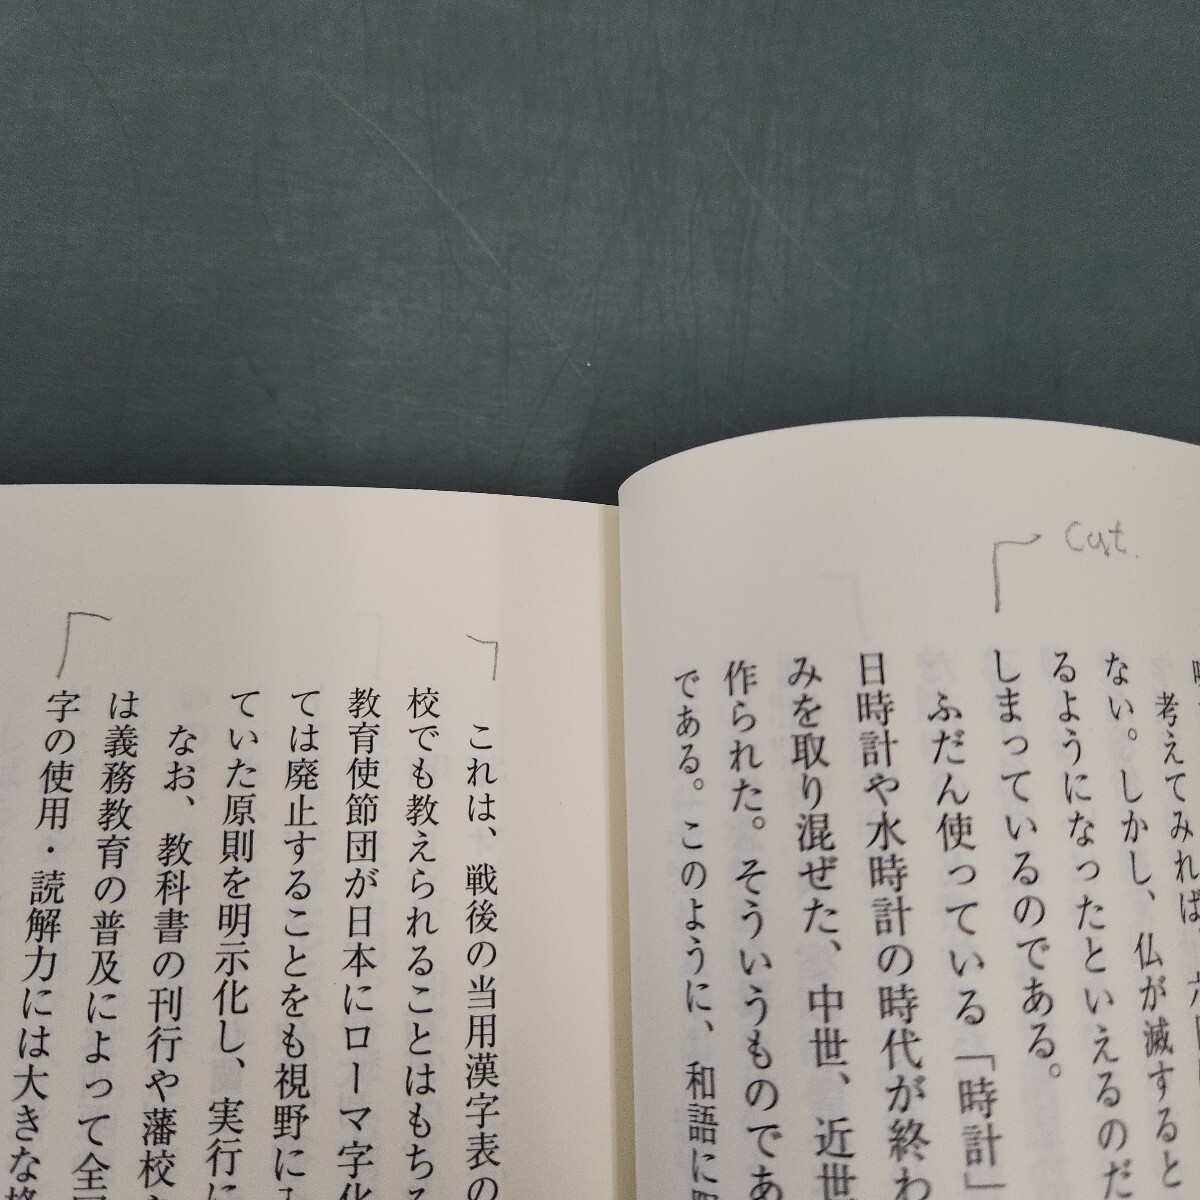 Cut.
考えてみれば、六
ない。しかし、仏が滅すると
るようになったといえるのだ
しまっているのである。
ふだん使っている「時計」
日時計や水時計の時代が終わ
みを取り混ぜた、中世、近世
作られた。そういうものであ
である。このように、和語に
これは、戦後の当用漢字表の
校でも教えられることはもち
教育使節団が日本にローマ字化
ては廃止することをも視野に入
ていた原則を明示化し、実行に
なお、教科書の刊行や藩校
は義務教育の普及によって全
字の使用・読解力には大きな格